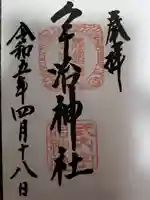 奉拝
宇治神社
令和五年四月十八日